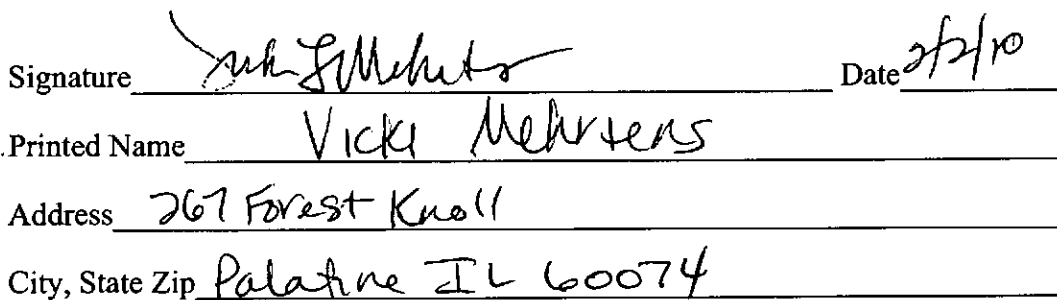 Signature Date 2/2/10
Printed Name Vicki Mehrtens
Address 267 Forest Knoll
City, State Zip Palatine IL 60074